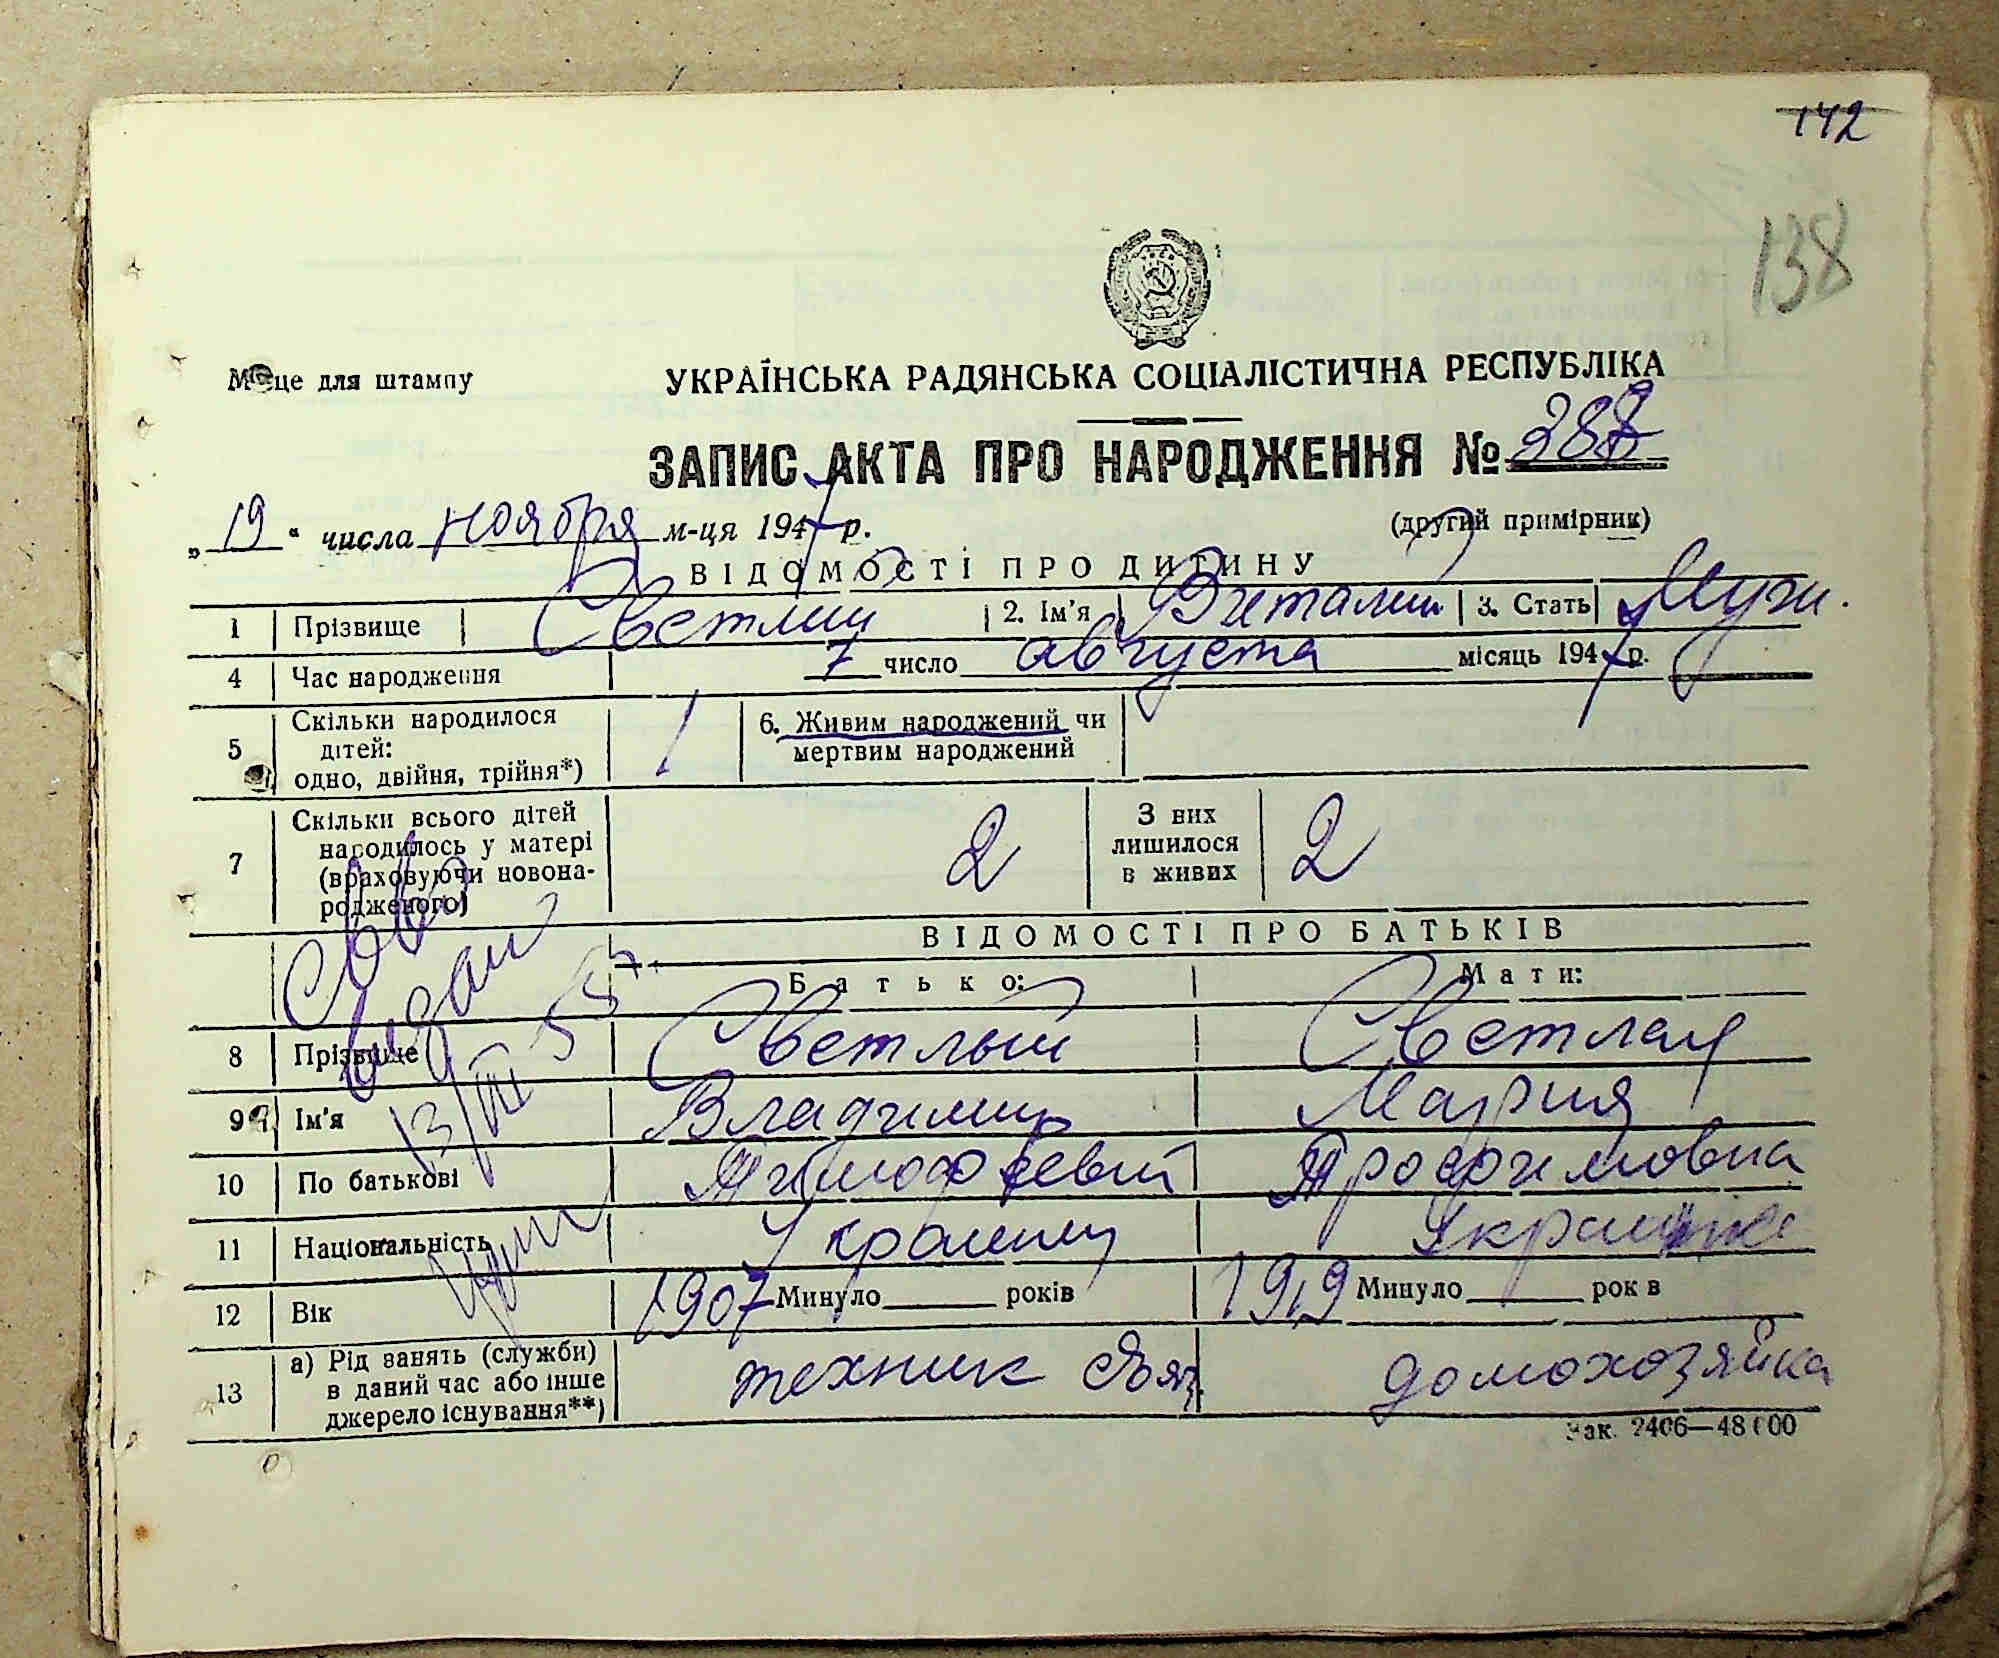 142
138
Місце для штампу
УКРАЇНСЬКА РАДЯНСЬКА СОЦІАЛІСТИЧНА РЕСПУБЛІКА
ЗАПИС АКТА ПРО НАРОДЖЕННЯ № 288
„19“ числа ноября м-ця 1947 р. (другий примірник)
ВІДОМОСТІ ПРО ДИТИНУ
1 Прізвище Светлий 2. Ім'я Виталий 3. Стать Муж.
4 Час народження 7 число августа місяць 1947 р.
5 Скільки народилося дітей: одно, двійня, трійня*) 1 6. Живим народжений чи мертвим народжений
7 Скільки всього дітей народилось у матері (враховуючи новонародженого) 2 З них лишилося в живих 2
ВІДОМОСТІ ПРО БАТЬКІВ
Батько: Мати:
8 Прізвище Светлый Светлая
9 Ім'я Владимир Мария
10 По батькові Тимофеевич Трофимовна
11 Національність Украинец Украинка
12 Вік 1907 Минуло років 1919 Минуло рок в
13 а) Рід занять (служби) в даний час або інше джерело існування**) техник связ. домохозяйка
Зак. 2406—48000
Св-во
выдан
13/III 55